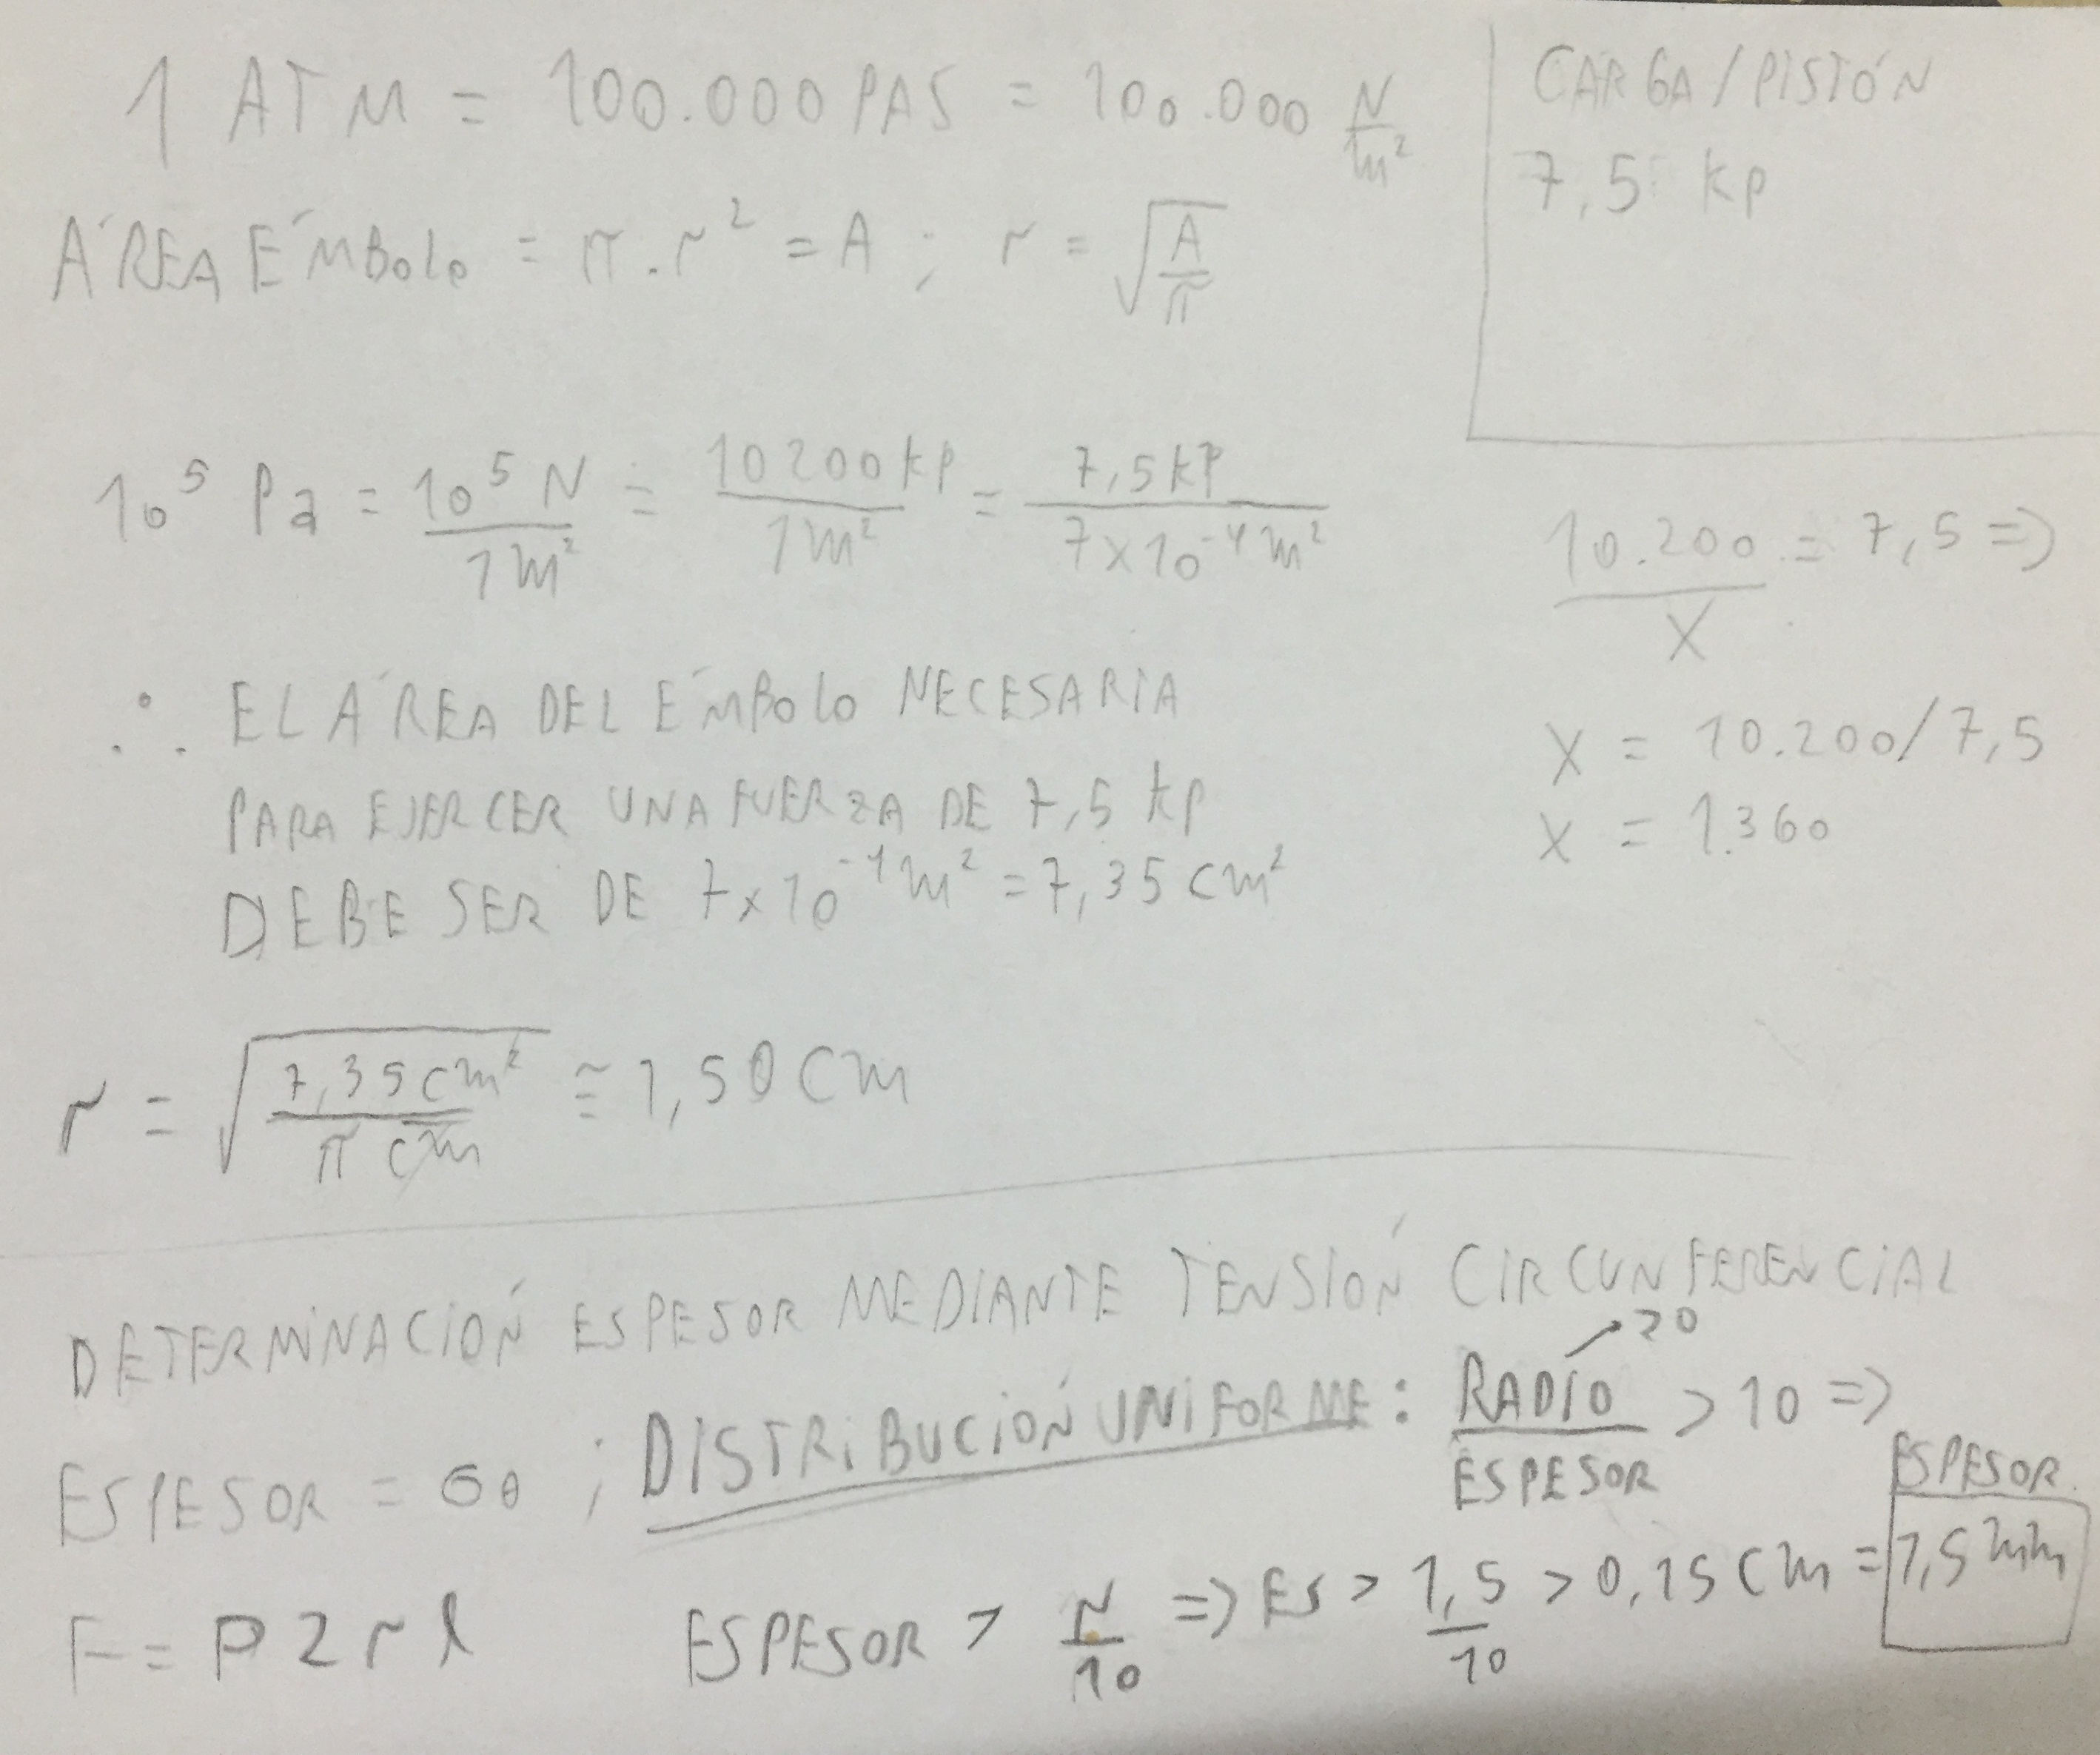 1 ATM = 100.000 PAS = 100.000 N/m²
CARGA/PISTÓN
7,5 kp
ÁREA ÉMBOLO = π.r² = A ; r = √(A/π)
10⁵ Pa = 10⁵ N/1 m² = 10200 kp/1 m² = 7,5 kP/7x10⁻⁴ m²
10.200/X = 7,5 =>
X = 10.200/7,5
X = 1.360
∴ EL ÁREA DEL ÉMBOLO NECESARIA
PARA EJERCER UNA FUERZA DE 7,5 kp
DEBE SER DE 7x10⁻⁴ m² = 7,35 cm²
r = √(7,35 cm²/π cm) ≅ 1,50 cm
DETERMINACIÓN ESPESOR MEDIANTE TENSIÓN CIRCUNFERENCIAL
ESPESOR = σθ ; DISTRIBUCIÓN UNIFORME: RADIO/ESPESOR > 10 =>
F = P 2 r l
ESPESOR > r/10 => ES > 1,5/10 > 0,15 cm = 1,5 mm
ESPESOR